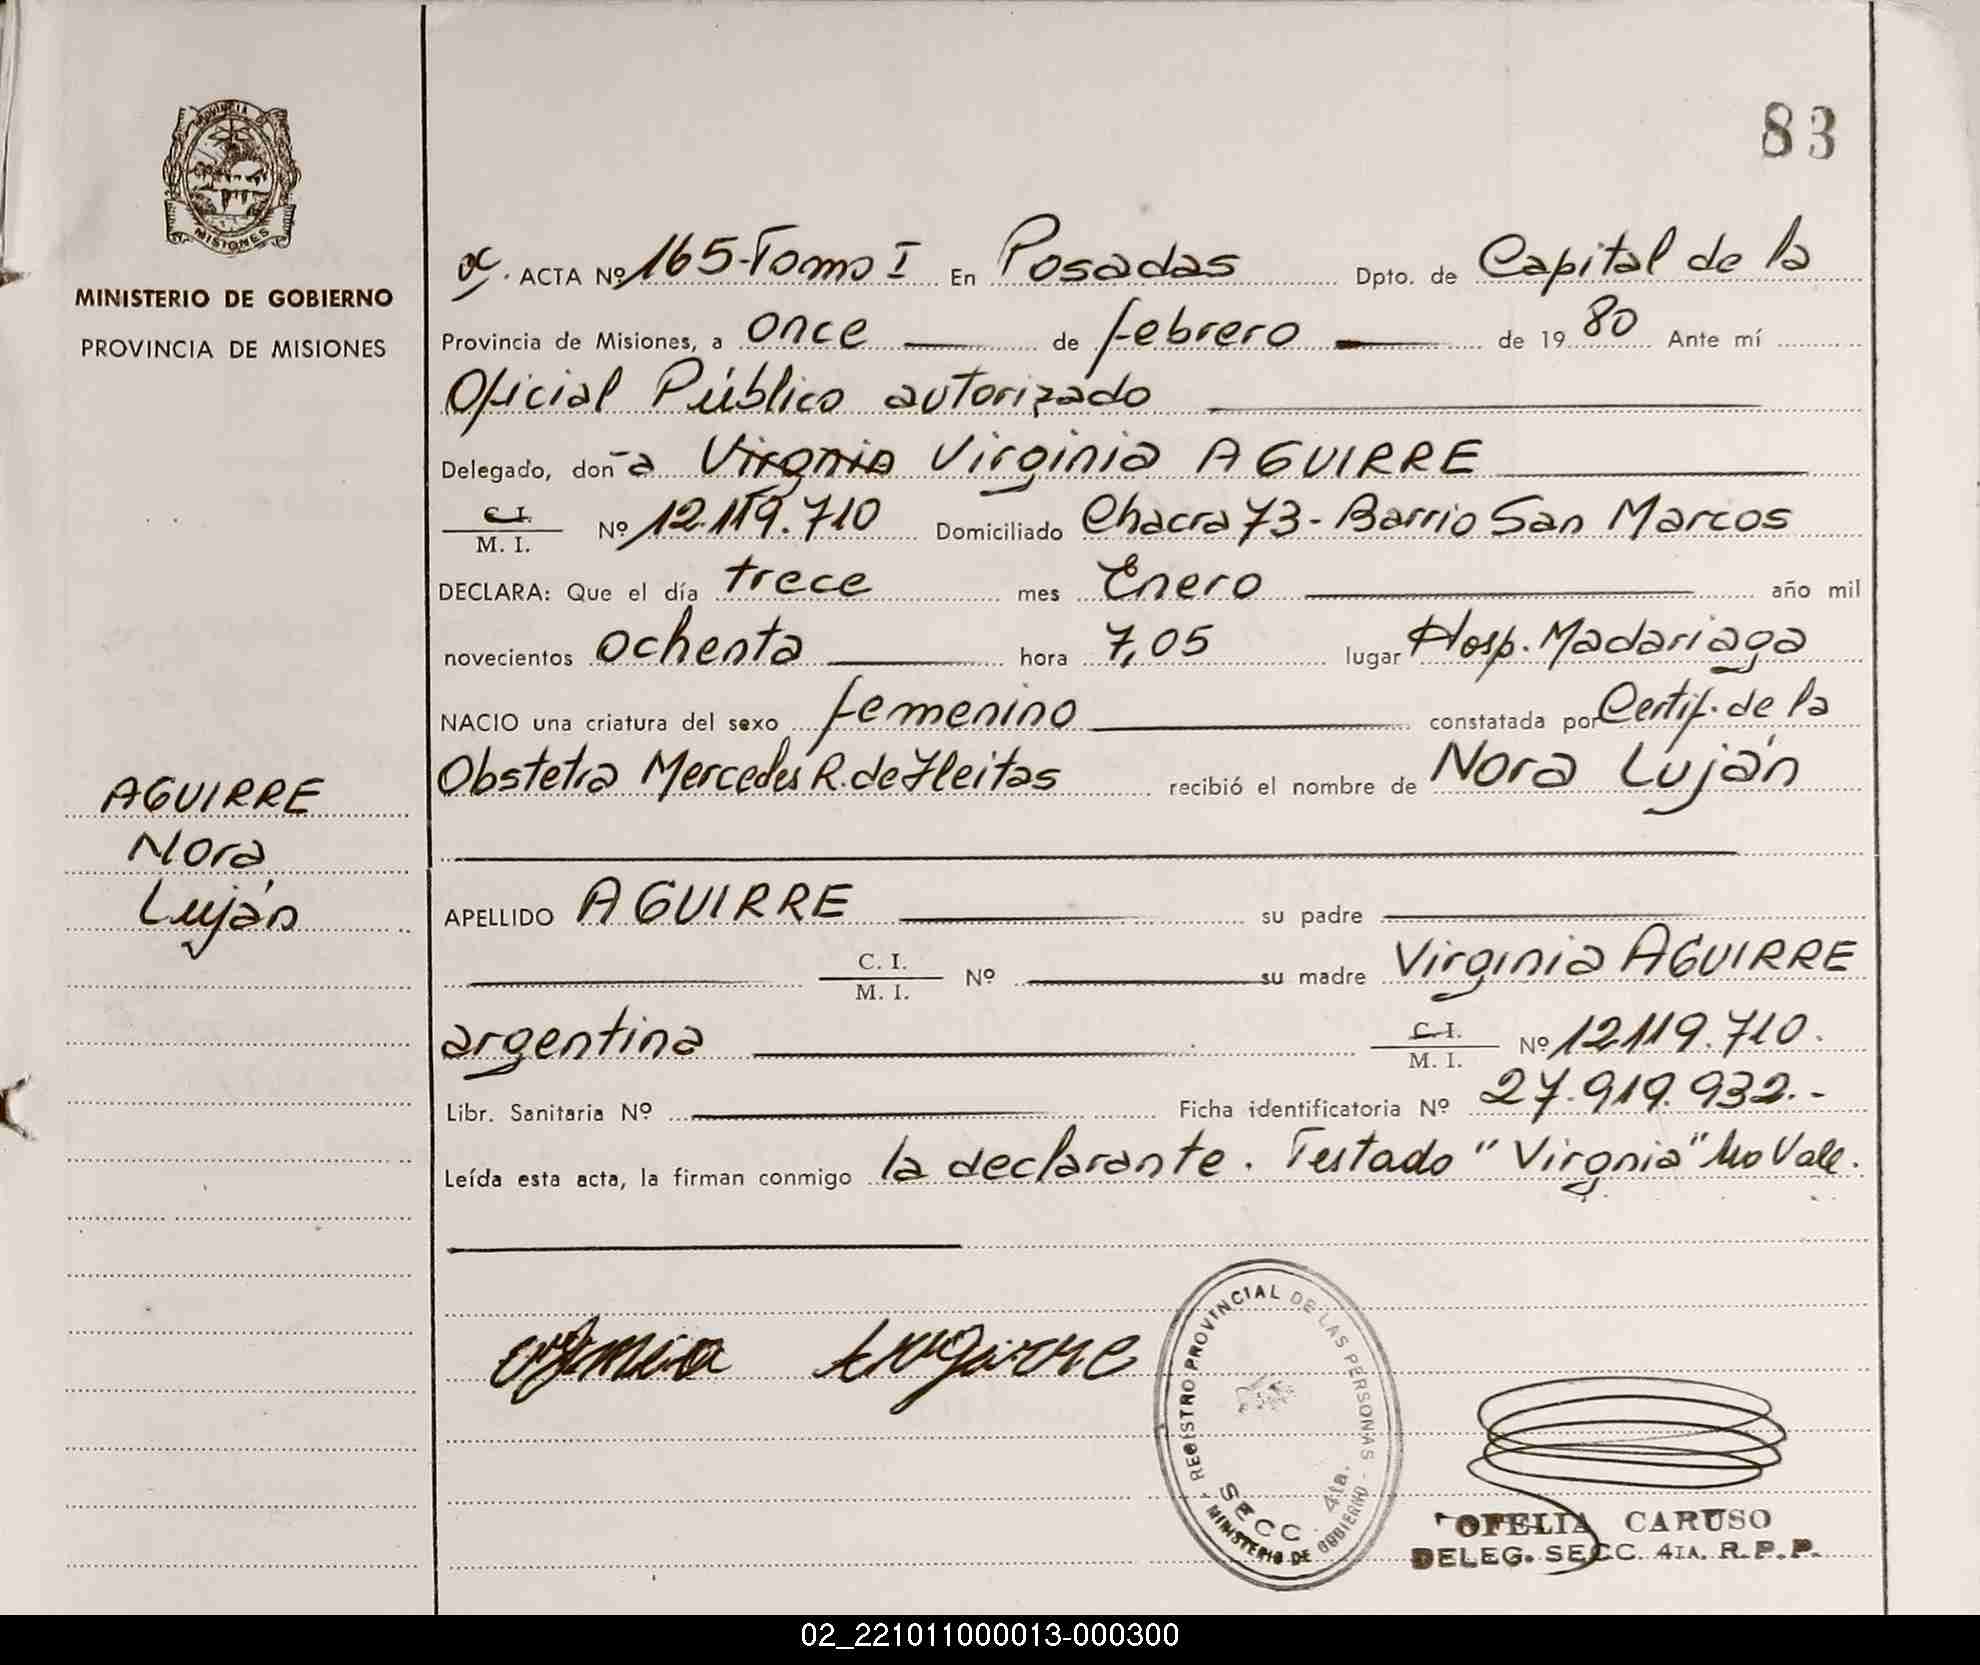 83
PROVINCIA DE
MISIONES
MINISTERIO DE GOBIERNO
PROVINCIA DE MISIONES
AGUIRRE
Nora
Luján
ACTA Nº 165-Tomo I En Posadas Dpto. de Capital de la
Provincia de Misiones, a once de febrero de 19 80 Ante mí
Oficial Público autorizado
Delegado, don a Virgnia Virginia AGUIRRE
C.I.
M. I. Nº 12.119.710 Domiciliado Chacra 73 - Barrio San Marcos
DECLARA: Que el día trece mes Enero año mil
novecientos ochenta hora 7,05 lugar Hosp. Madariaga
NACIO una criatura del sexo femenino constatada por Certif. de la
Obstetra Mercedes R. de Fleitas recibió el nombre de Nora Luján
APELLIDO AGUIRRE su padre
C. I.
M. I. Nº su madre Virginia AGUIRRE
argentina C. I.
M. I. Nº 12.119.710.
Libr. Sanitaria Nº Ficha identificatoria Nº 27.919.932.-
Leída esta acta, la firman conmigo la declarante. Testado "Virgnia" No Vale.
REGISTRO PROVINCIAL DE LAS PERSONAS
SECC. 4ta.
MINISTERIO DE GOBIERNO
OFELIA CARUSO
DELEG. SECC. 4TA. R.P.P.
02_221011000013-000300